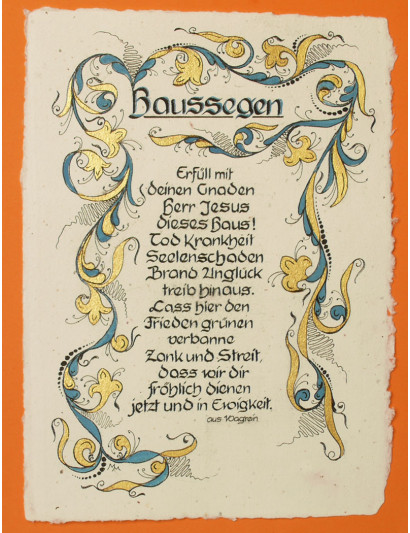 Haussegen
Erfüll mit
deinen Gnaden
Herr Jesus
dieses Haus!
Tod Krankheit
Seelenschaden
Brand Unglück
treib hinaus.
Lass hier den
Frieden grünen
verbanne
Zank und Streit,
dass wir dir
fröhlich dienen
jetzt und in Ewigkeit.
aus Wagrein